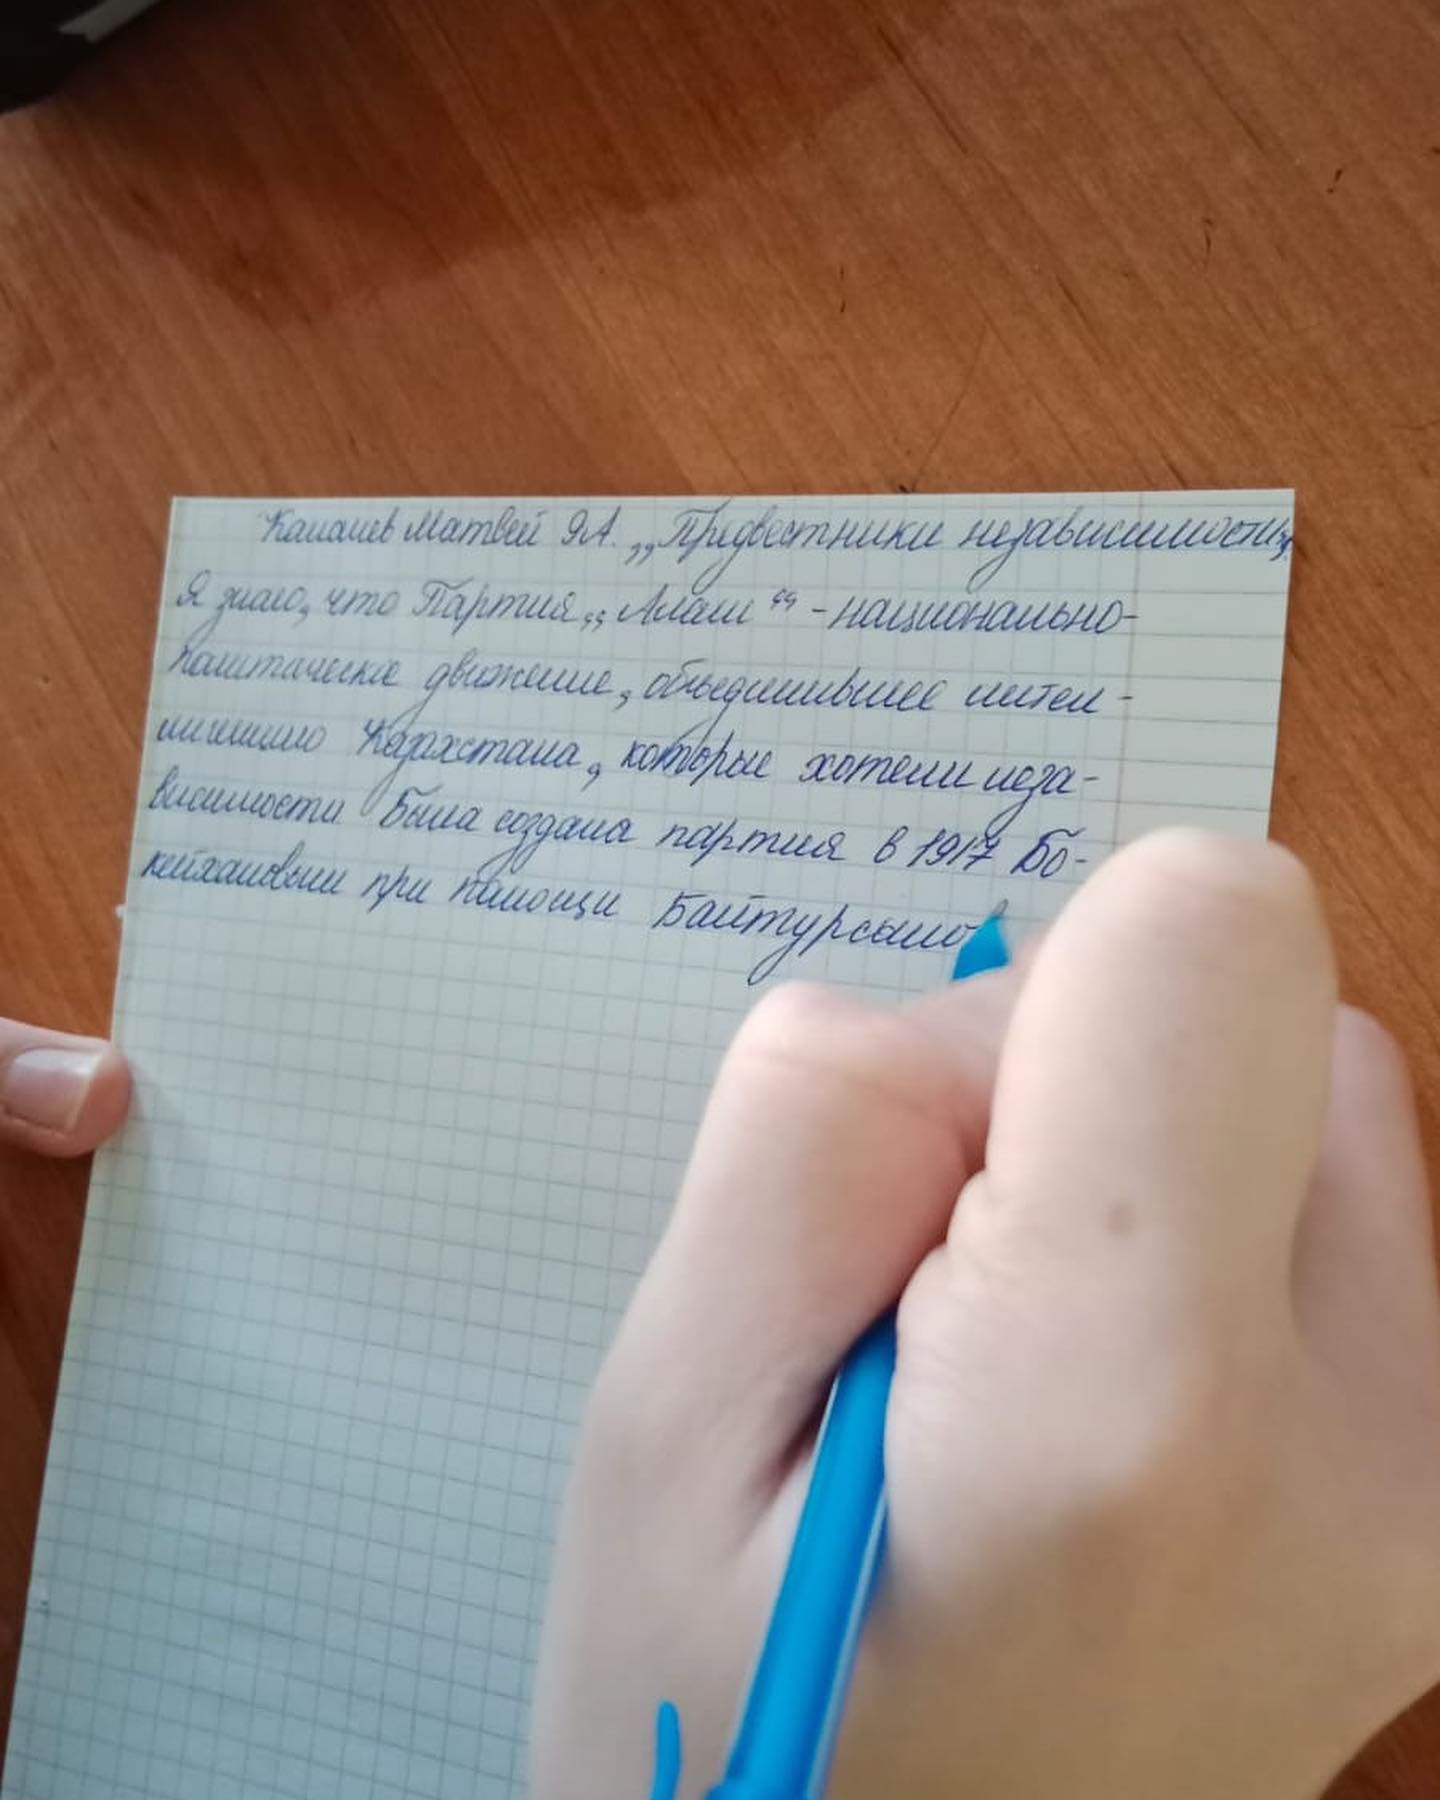 Матвей 9А. „Предвестники независимости"
Я знаю, что Партия „Алаш" - национально-
политическое движение, объединившее интел-
лигенцию Казахстана, которые хотели неза-
висимости Была создана партия в 1917 Бо-
кейхановым при помощи Байтурсынов